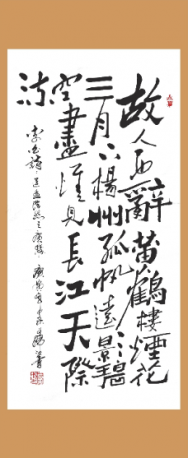 故人西辭黃鶴樓煙花
三月下楊州孤帆遠景碧
空盡惟見長江天際
流
李白詩送孟浩然之廣陵